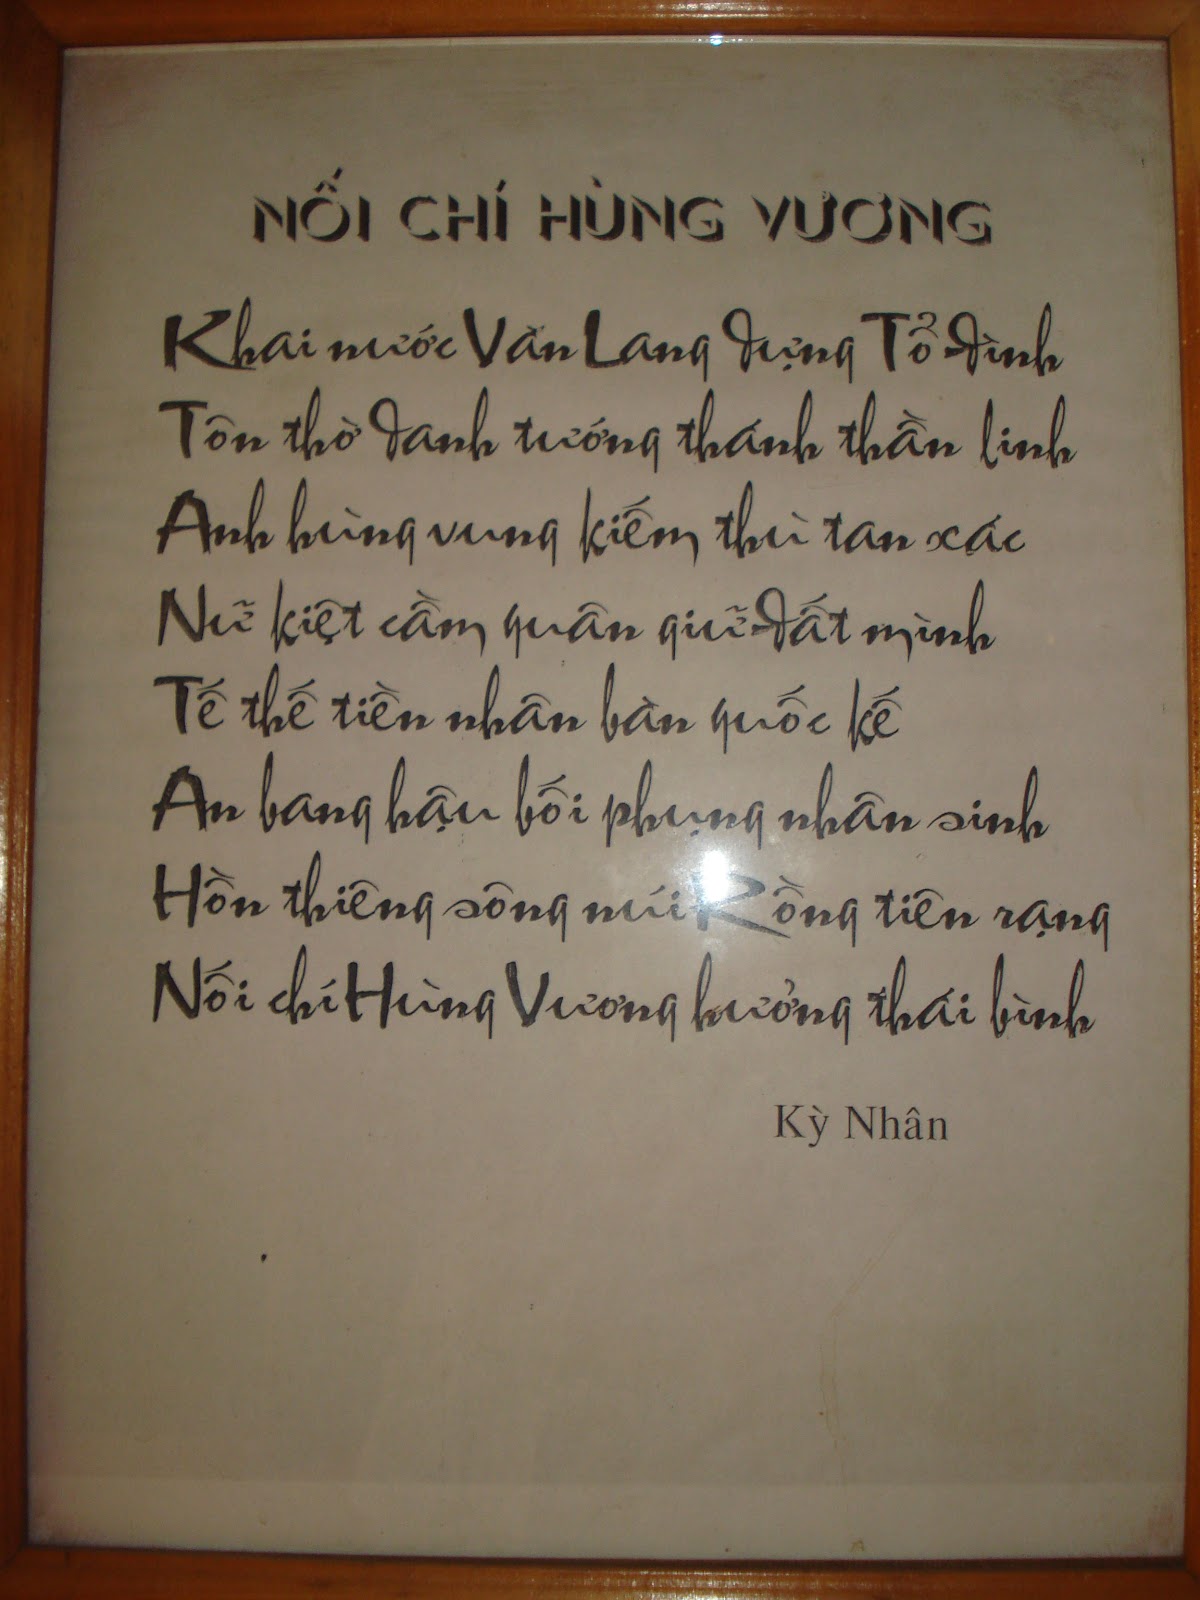 NỐI CHÍ HÙNG VƯƠNG
Khai nước Văn Lang dựng Tổ đình
Tôn thờ danh tướng thánh thần linh
Anh hùng vung kiếm thù tan xác
Nữ kiệt cầm quân giữ đất mình
Tế thế tiền nhân bàn quốc kế
An bang hậu bối phụng nhân sinh
Hồn thiêng sông núi Rồng tiên rạng
Nối chí Hùng Vương hưởng thái bình
Kỳ Nhân